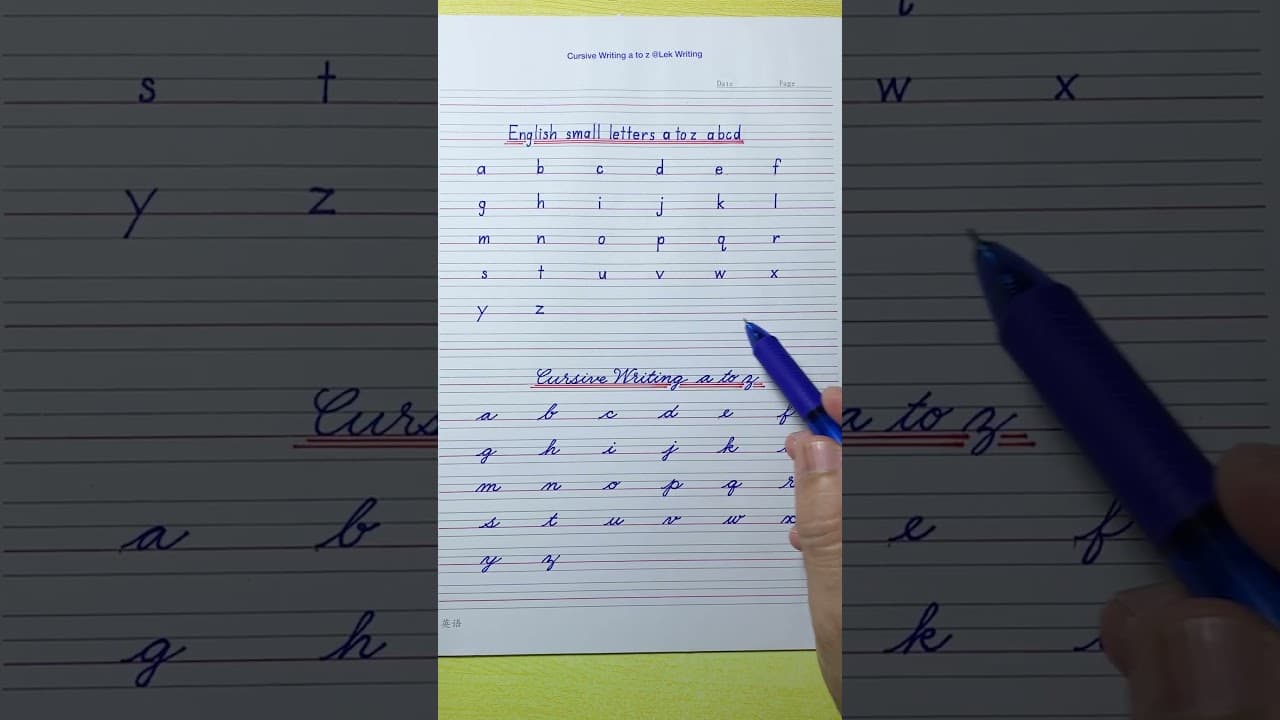 Cursive Writing a to z @Lek Writing
Date Page
English small letters a to z abcd
a b c d e f
g h i j k l
m n o p q r
s t u v w x
y z
Cursive Writing a to z
a b c d e f
g h i j k
m n o p q r
s t u v w x
y z
英语